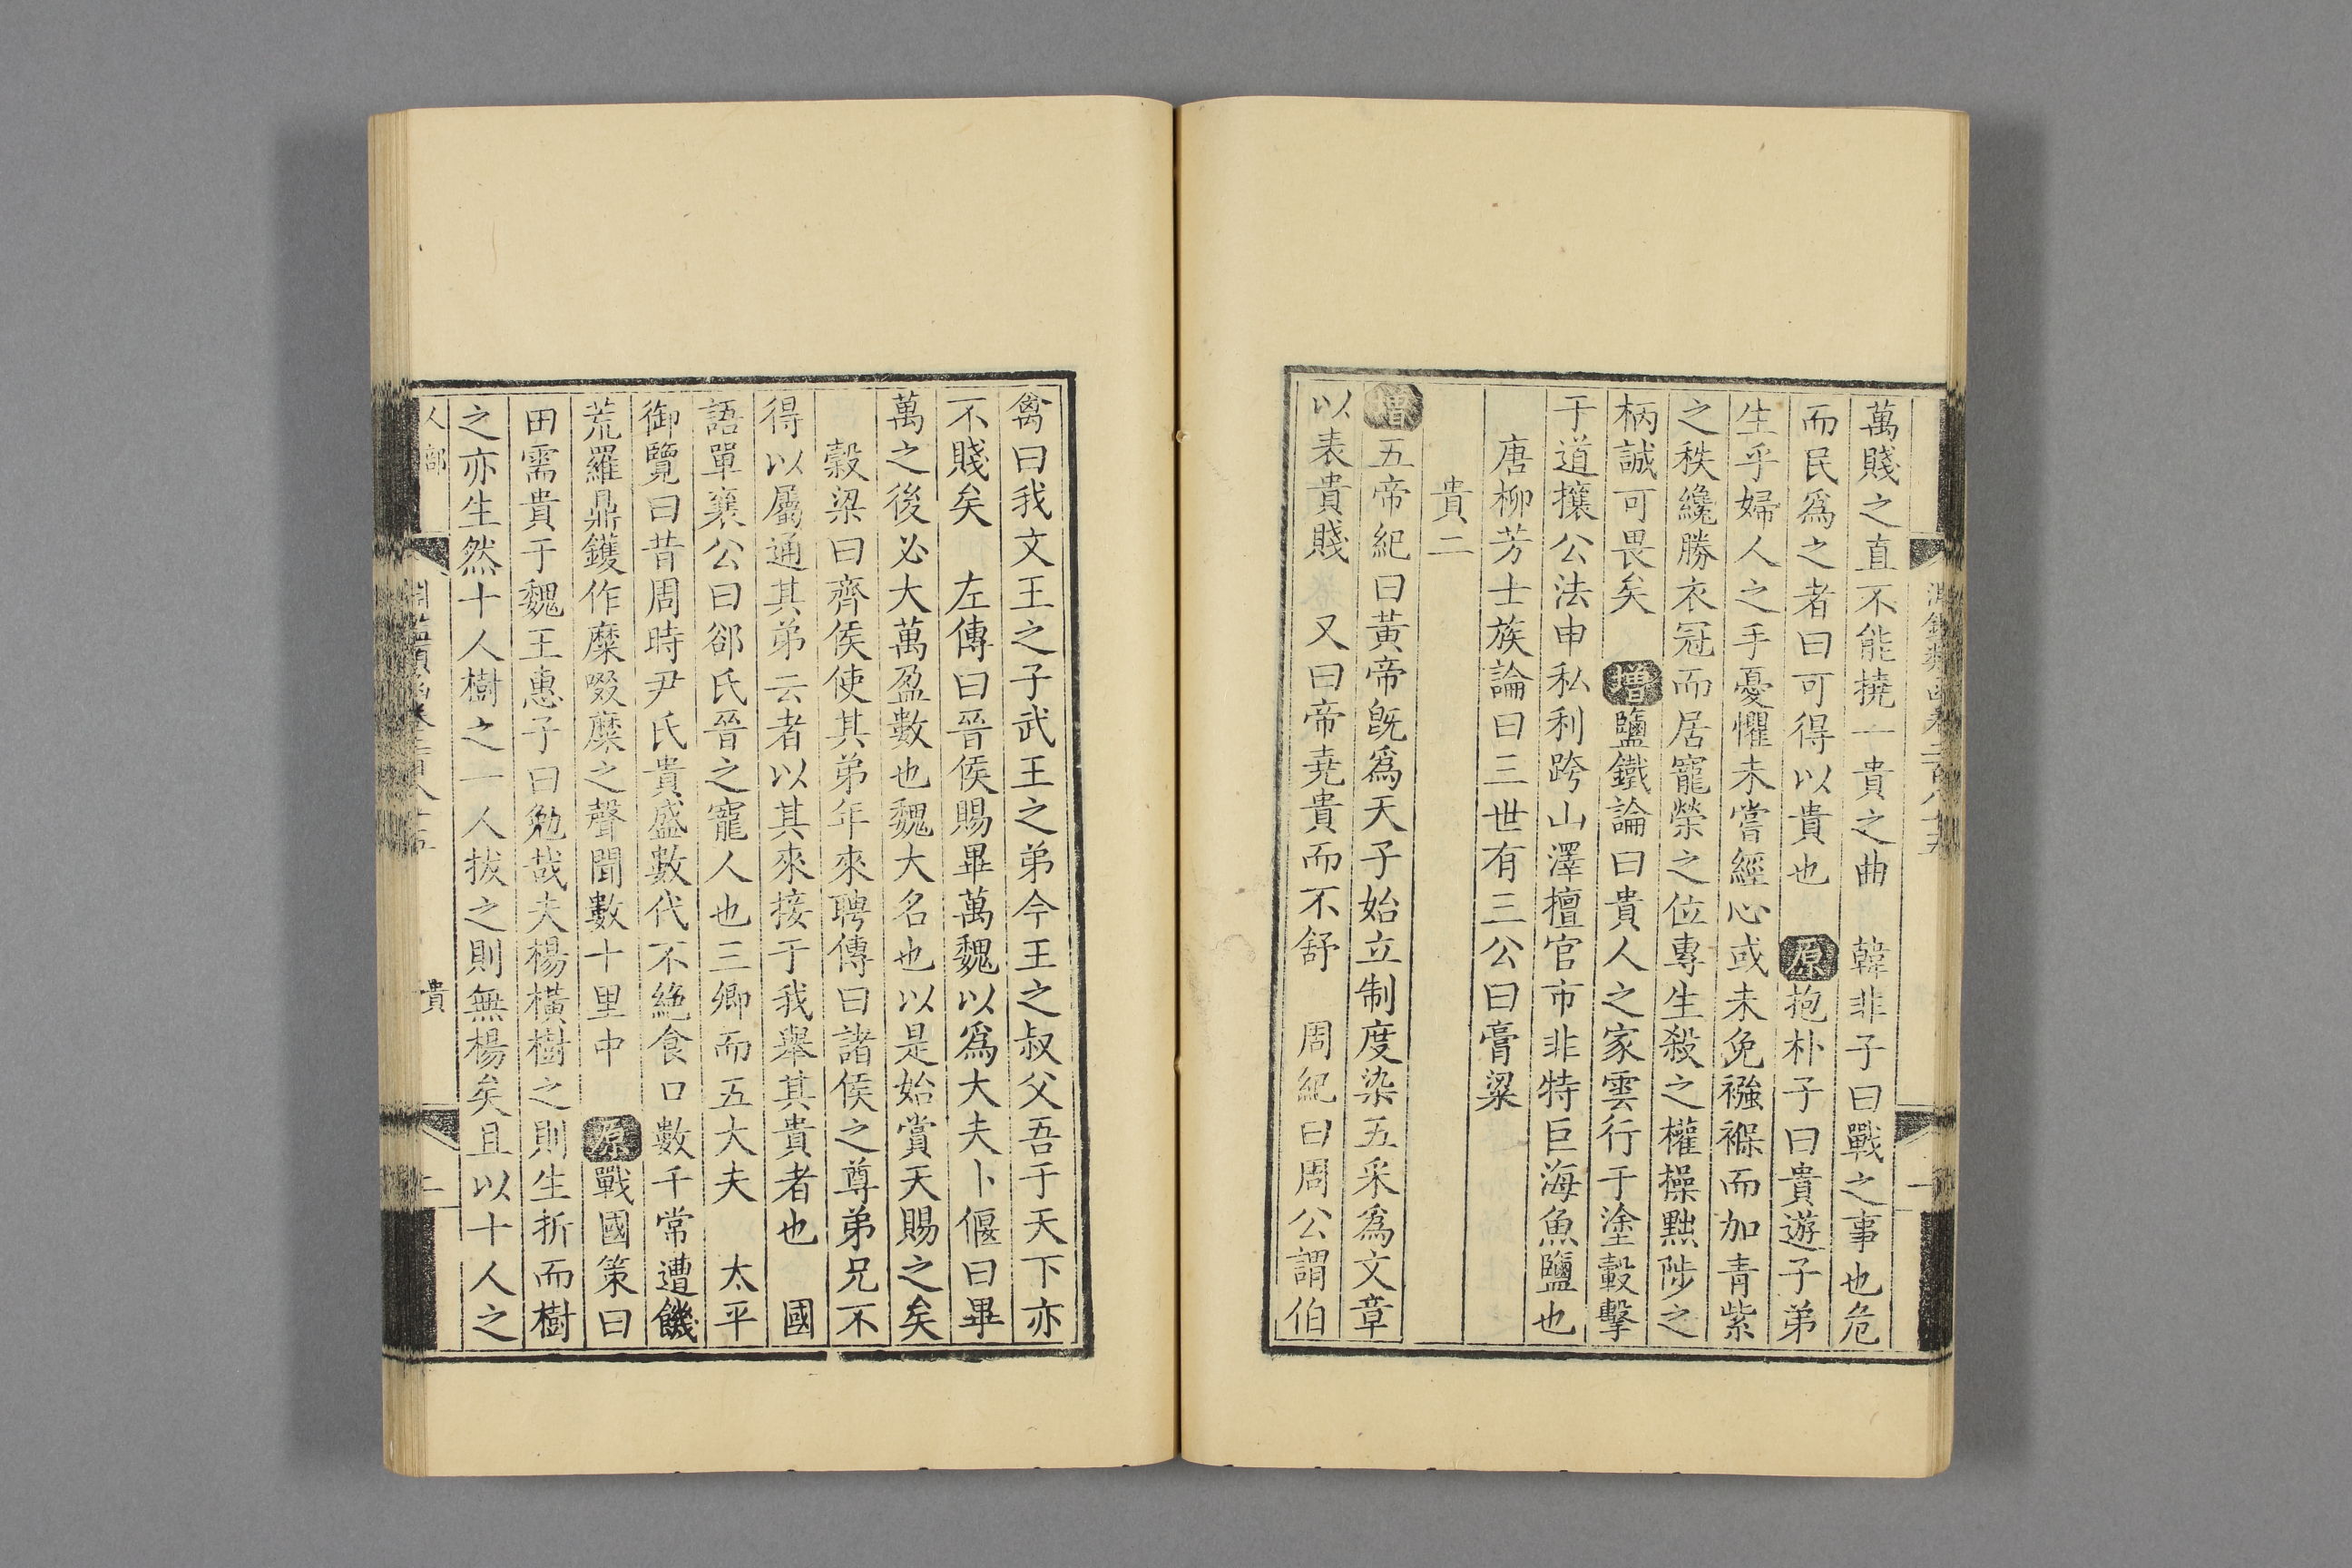 萬賤之直不能撓一貴之曲　韓非子曰戰之事也危
而民爲之者曰可得以貴也　原抱朴子曰貴遊子弟
生乎婦人之手憂懼未嘗經心或未免襁褓而加青紫
之秩纔勝衣冠而居寵榮之位專生殺之權操黜陟之
柄誠可畏矣　增鹽鐵論曰貴人之家雲行于塗轂擊
于道攘公法申私利跨山澤擅官市非特巨海魚鹽也
唐柳芳士族論曰三世有三公曰膏粱
貴二
增五帝紀曰黃帝旣爲天子始立制度染五采爲文章
以表貴賤　又曰帝堯貴而不舒　周紀曰周公謂伯
禽曰我文王之子武王之弟今王之叔父吾于天下亦
不賤矣　左傳曰晉侯賜畢萬魏以爲大夫卜偃曰畢
萬之後必大萬盈數也魏大名也以是始賞天賜之矣
穀梁曰齊侯使其弟年來聘傳曰諸侯之尊弟兄不
得以屬通其弟云者以其來接于我舉其貴者也　國
語單襄公曰郤氏晉之寵人也三卿而五大夫　太平
御覽曰昔周時尹氏貴盛數代不絕食口數千常遭饑
荒羅鼎鑊作糜啜糜之聲聞數十里中　原戰國策曰
田需貴于魏王惠子曰勉哉夫楊橫樹之則生折而樹
之亦生然十人樹之一人拔之則無楊矣且以十人之
人部
貴